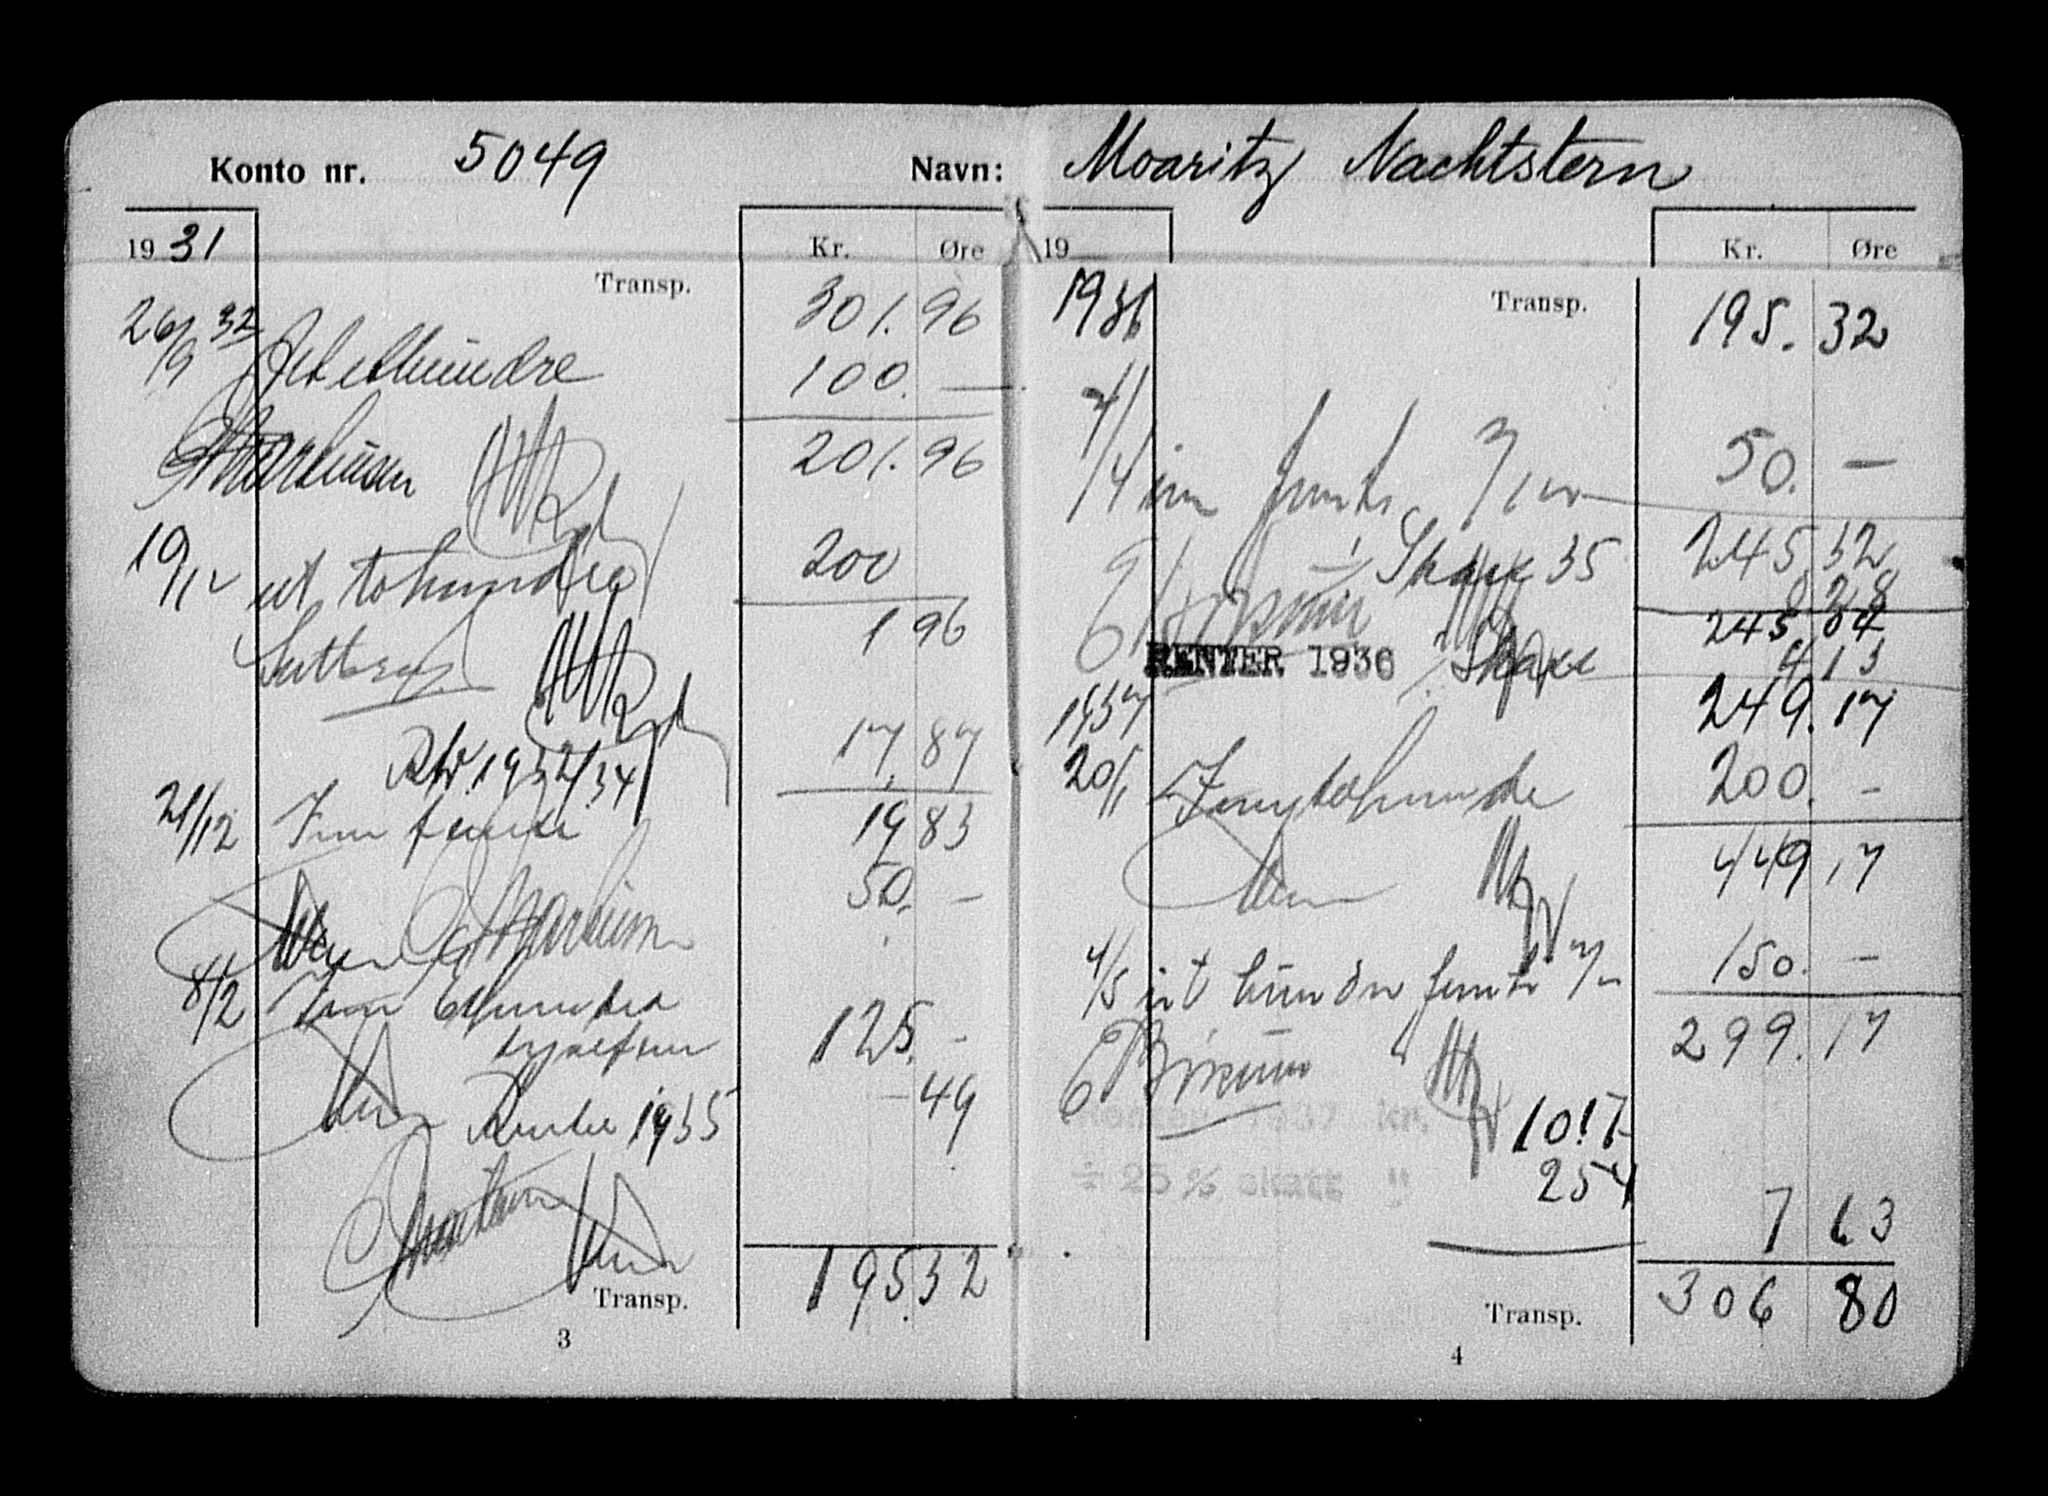 Konto nr. 5049
Navn: Moaritz Nachtstern
1931
Kr. Øre
Transp.
26/9 32 301.96
Ut etthundre 100. —
201.96
19/12 ut tohundre 200
1 96
Rtr. 1932/34 17,87
21/12 Inn femti 19 83
50. -
8/2 Inn Etthundre 125. -
tyvefem
Renter 1935 - 49
195.32
Transp.
3
19
Kr. Øre
1936
Transp. 195.32
4/4 inn femti 7/10 50. —
÷ Skatt 35 245.32
RENTER 1936 ÷ Skatt 4 13
1937 249.17
20/1 Inn tohundre 200. -
449 17
4/5 ut hundre femti 7/10 150. —
299.17
Renter 1937 kr. 1017
÷ 25% skatt " 254
7 63
306 80
Transp.
4